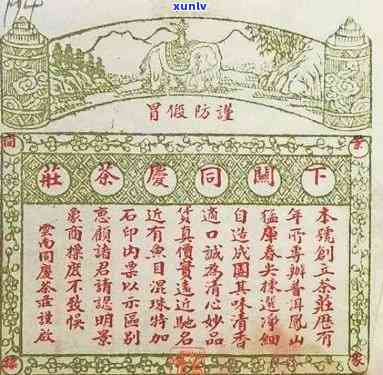 xunlv
謹防假冒
下關同慶茶莊
本號創立茶莊歷有
年所專辦普洱鳳山
猛庫春尖揀選淨細
自造成團其味清香
適口誠為清心妙品
貨真價實遠近馳名
近有魚目混珠特加
石印內票以示區别
惠顧諸君請認明景
象商標庶不致悞
雲南同慶茶莊謹啟